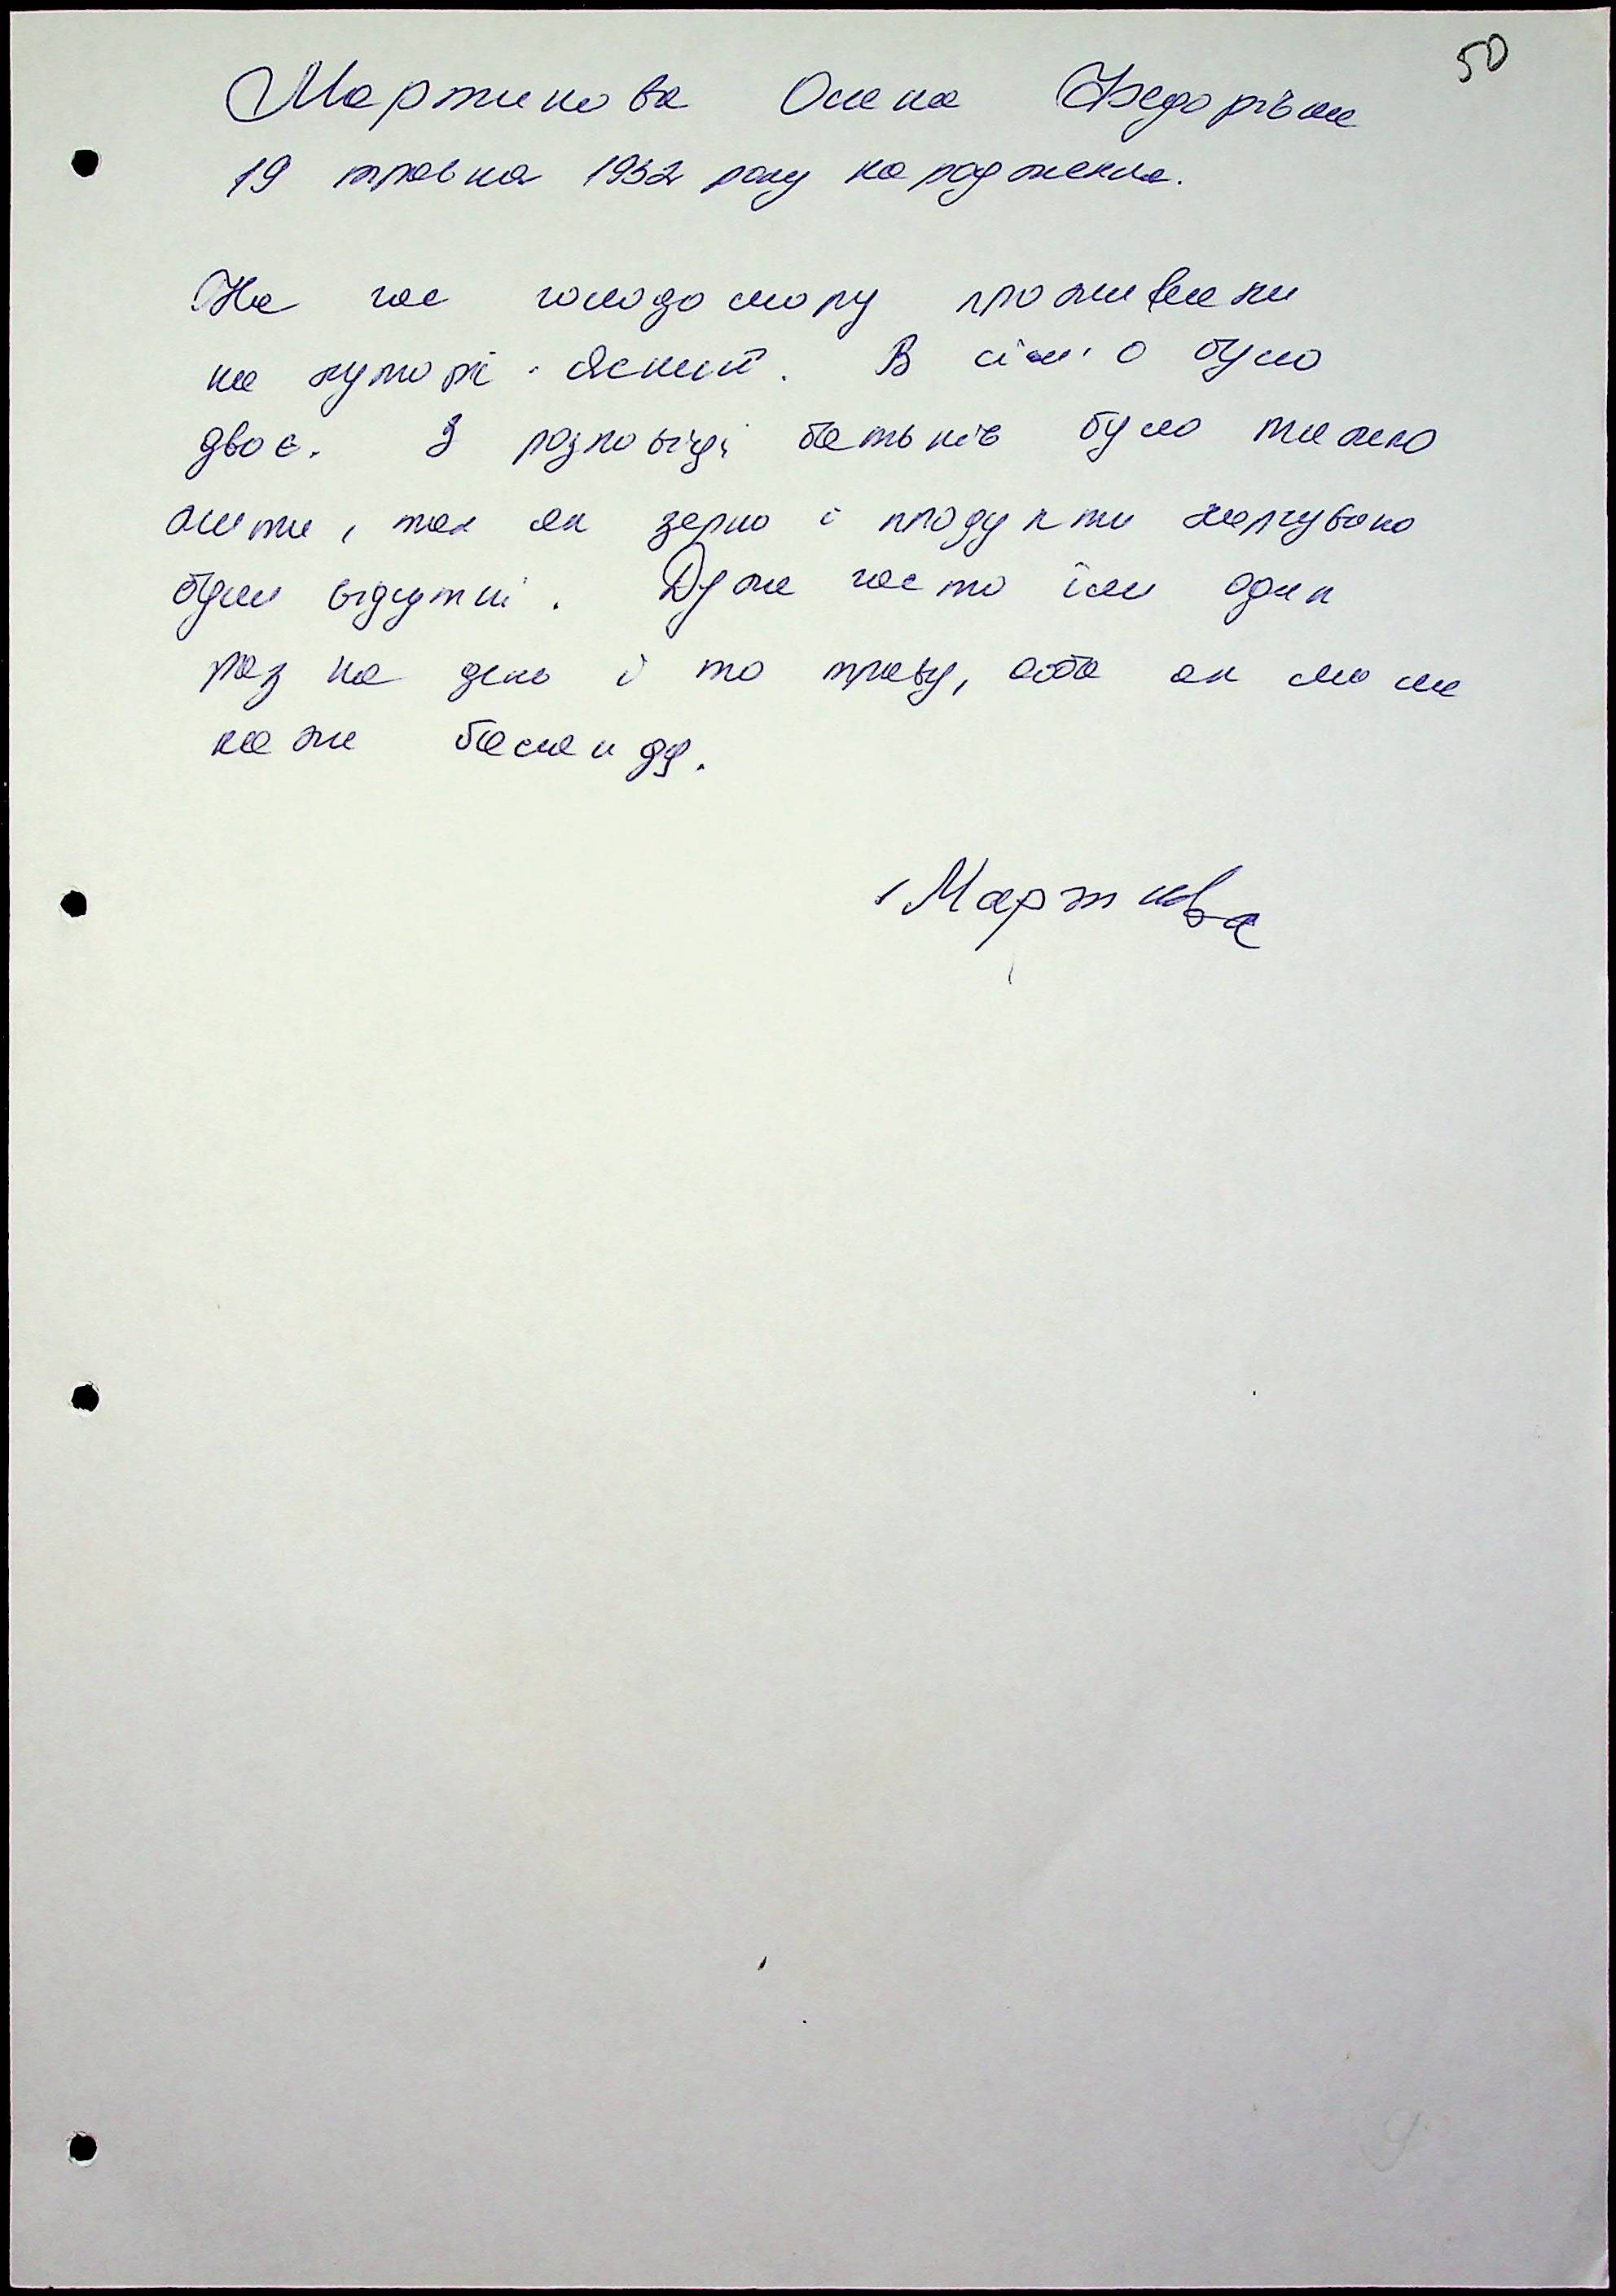 50
Мартинова Олена Федорівна
19 травня 1932 року народження.
На час голодомору проживали
на хуторі Ясний. В сім'ї було
двоє. З розповіді батьків було тяжко
жити, так як зерно і продукти харчування
були відсутні. Дуже часто їли один
раз на день і то траву, або як мама
каже баланду.
Мартинова